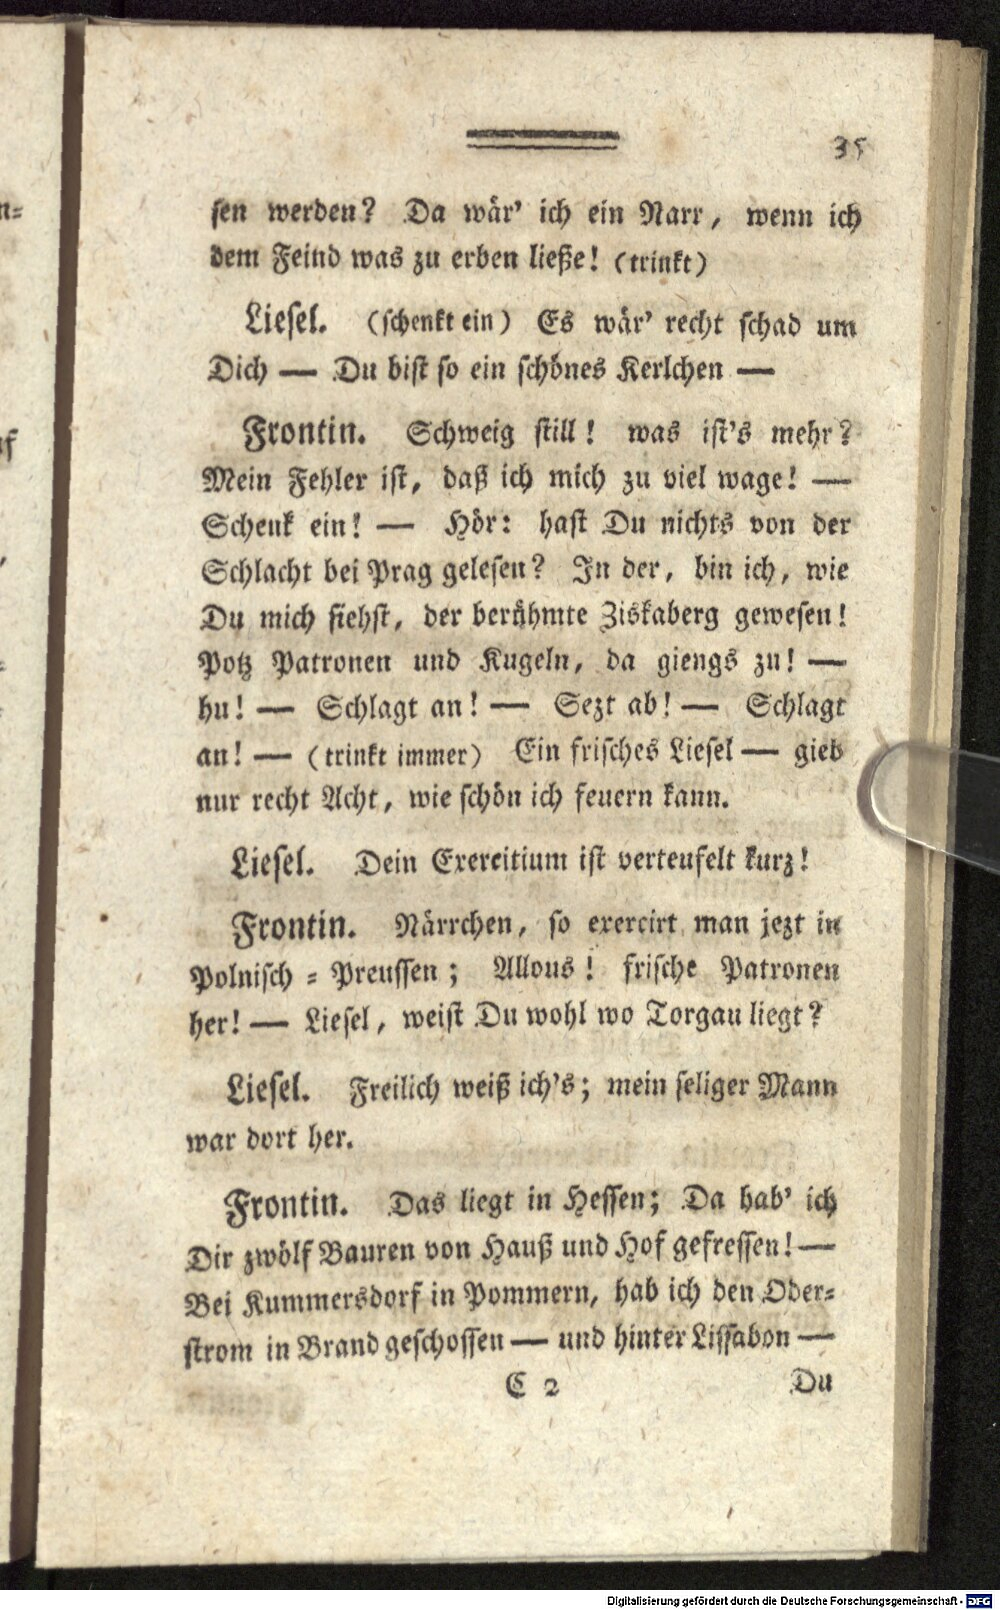 35
sen werden? Da wär' ich ein Narr, wenn ich
dem Feind was zu erben ließe! (trinkt)
Liesel. (schenkt ein) Es wär' recht schad um
Dich — Du bist so ein schönes Kerlchen —
Frontin. Schweig still! was ist's mehr?
Mein Fehler ist, daß ich mich zu viel wage! —
Schenk ein! — Hör: hast Du nichts von der
Schlacht bei Prag gelesen? In der, bin ich, wie
Du mich siehst, der berühmte Ziskaberg gewesen!
Potz Patronen und Kugeln, da giengs zu! —
hu! — Schlagt an! — Sezt ab! — Schlagt
an! — (trinkt immer) Ein frisches Liesel — gieb
nur recht Acht, wie schön ich feuern kann.
Liesel. Dein Exercitium ist verteufelt kurz!
Frontin. Närrchen, so exercirt man jezt in
Polnisch-Preussen; Allons! frische Patronen
her! — Liesel, weist Du wohl wo Torgau liegt?
Liesel. Freilich weiß ich's; mein seliger Mann
war dort her.
Frontin. Das liegt in Hessen; Da hab' ich
Dir zwölf Bauren von Hauß und Hof gefressen! —
Bei Kummersdorf in Pommern, hab ich den Oder-
strom in Brand geschossen — und hinter Lissabon —
C 2 Du
Digitalisierung gefördert durch die Deutsche Forschungsgemeinschaft - DFG